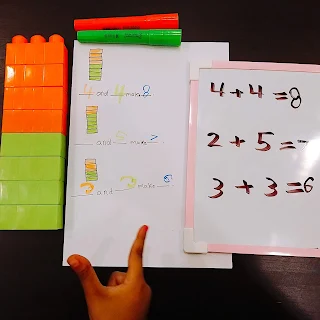 4 and 4 make 8
and 5 make 7
3 and 3 make 6
4+4=8
2+5=
3+3=6